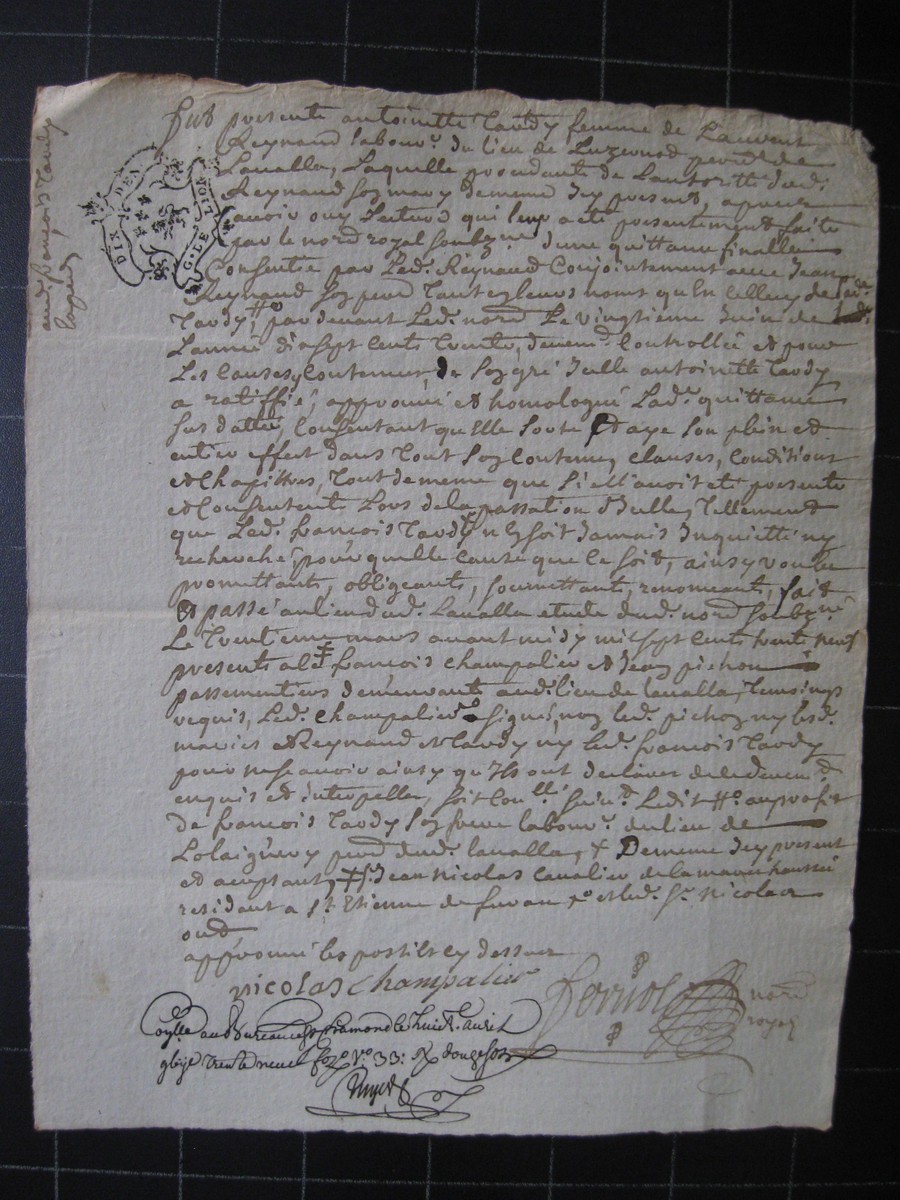 aud. françois tardy
DIX DEN
G. DE LION
fut presente antoinette tardy femme de Laurent
Reynaud labour. du lieu de Luzernod parr. de
Lavalla, Laquelle procedante de Lautoritté dud.
Reynaud soz mary demême Jcy present, apprez
avoir ouy Lecture qui leur a eté presentement faite
par le nore royal soubzne dune quittance finalle
Consentie par Led. Reynaud Conjointement avec Jean
Reynaud soz pere tant ez leurs noms qu'en celluy de lad.
tardy par devant Led. nore Le vingtieme Juin de
Lannée dixsept cents trente, duem. Controllée et pour
Les Causes y Contenues, de soz gré Jcelle antoinette tardy
a ratiffié, approuvé et homologué Lad. quittance
sus dattée, Consentant qu'elle sorte et aye son plein et
entier effect dans tout soz Contenu, clauses, Conditions
et chapittres, tout de meme que si ell'avoit eté presente
et Consentente Lors de la passation d'Jcelle, tellement
que Led. françois tardy n'ez soit Jamais Jnquietté ny
recherché pour quelle cause que ce soit, ainsy voulu
promettant, obligeant, soumettant, renonceant, fait
et passé au lieu dud. Lavalla etude dud. nore soubzné
Le trentieme mars avant midy mil sept cents trente neuf
presents françois champalier et Jean pichon
passementiers demeurants aud. lieu de lavalla, temoings
requis, Led. champalier signé, noz led. pichoz ny lesd.
mariés Reynaud et tardy ny led. françois tardy
pour ne scavoir ainsy qu'Ils ont declaré de ce duem.
enquis et interpellés, soit Con.llé suiv. Ledit au profit
de françois tardy soz frere labour. du lieu de
Lolaignery parr. dud. lavalla, + Demême Jcy present
et aceptant, Jean nicolas Cavalier de la marechaussée
residant a St. Etienne de furan et led. Sr. nicolas
ond
approuvé les postilles cy dessus
nicolas champalier
ferriol nore royal
Con.llé au Bureau de St. chamond le huict. avril
gbijc trente neuf fo. Vo. 33: Rx douze sols